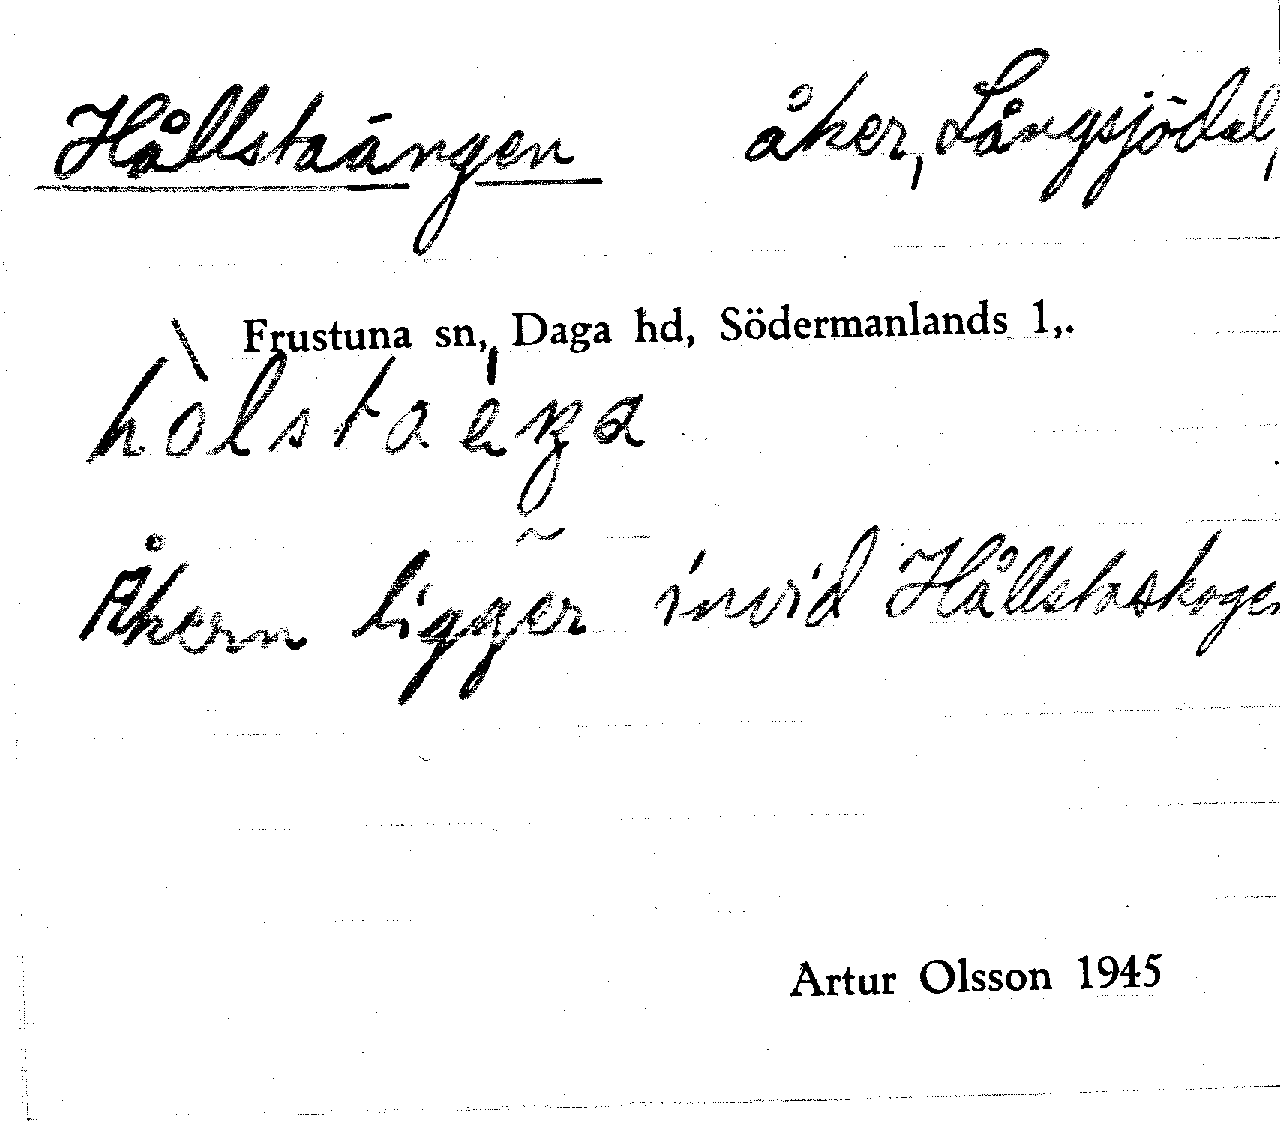 Hållstaängen åker, Långsjödal,
Frustuna sn, Daga hd, Södermanlands l,.
hòlstaéŋa
Åkern ligger invid Hållstaskogen
Artur Olsson 1945